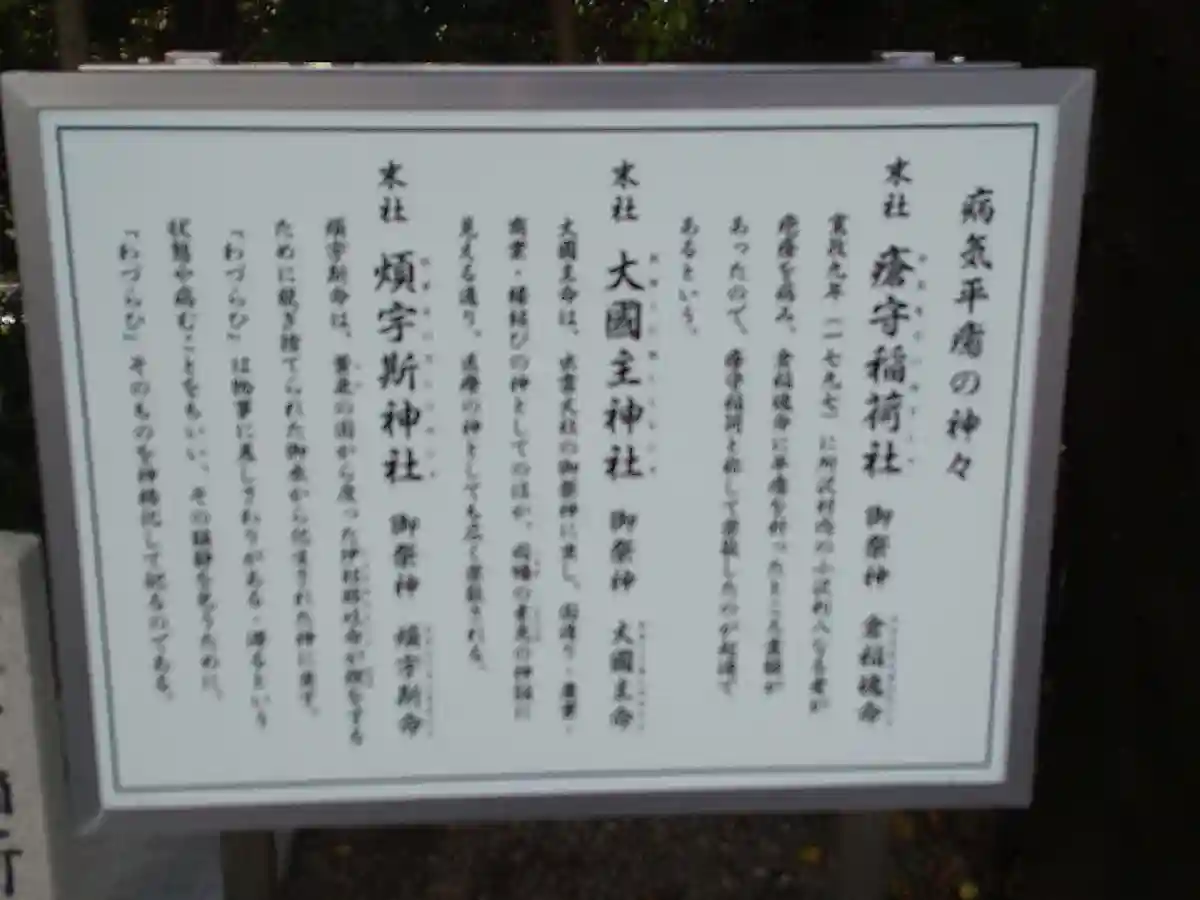 病気平癒の神々
末社 瘡守稲荷社 御祭神 倉稲魂命
寛政九年（一七九七）に所沢村内の小沢利八なる者が
疱瘡を病み、倉稲魂命に平癒を祈ったところ霊験が
あったので、瘡守稲荷と称して崇敬したのが起源で
あるという。
末社 大國主神社 御祭神 大國主命
大國主命は、出雲大社の御祭神に坐し、国造り・農業・
商業・縁結びの神としてのほか、因幡の素兎の神話に
見える通り、医療の神としても広く崇敬される。
末社 煩宇斯神社 御祭神 煩宇斯命
煩宇斯命は、黄泉の国から戻った伊邪那岐命が禊をする
ために脱ぎ捨てられた御衣から化生された神に坐す。
「わづらひ」は物事に差しさわりがある・滞るという
状態や病むことをもいい、その猛静を乞うために、
「わづらひ」そのものを神格化して祀るのである。